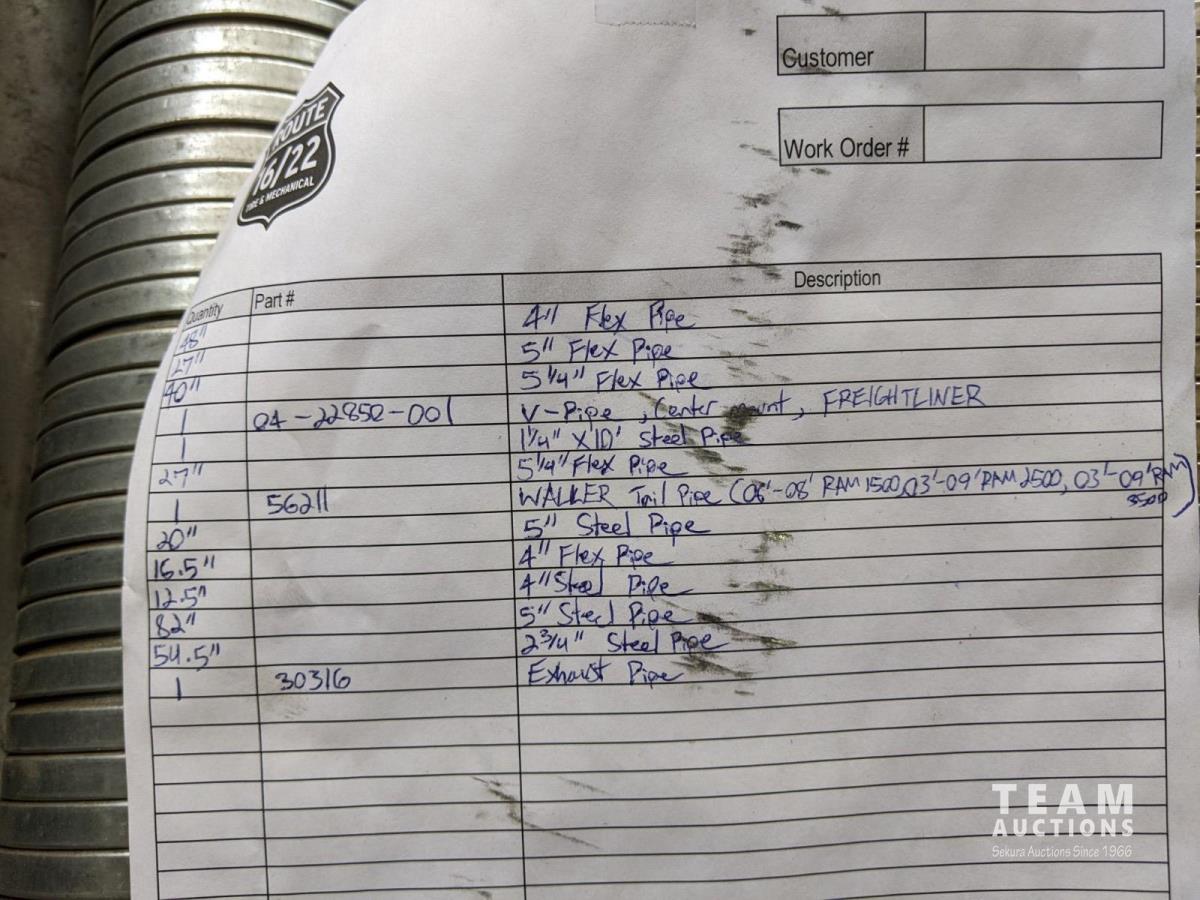 Customer
Work Order #
ROUTE
16/22
TIRE & MECHANICAL
Quantity Part # Description
48" 4" Flex Pipe
27" 5" Flex Pipe
40" 5 1/4" Flex Pipe
1 04-22850-001 V-Pipe, Center mount, FREIGHTLINER
1 1 1/4" X 10' Steel Pipe
27" 5 1/4" Flex Pipe
1 56211 WALKER Tail Pipe (06'-08' RAM 1500, 03'-09' RAM 2500, 03'-09' RAM 3500)
20" 5" Steel Pipe
16.5" 4" Flex Pipe
12.5" 4" Steel Pipe
82" 5" Steel Pipe
54.5" 2 3/4" Steel Pipe
1 30316 Exhaust Pipe
TEAM
AUCTIONS
Sekura Auctions Since 1966